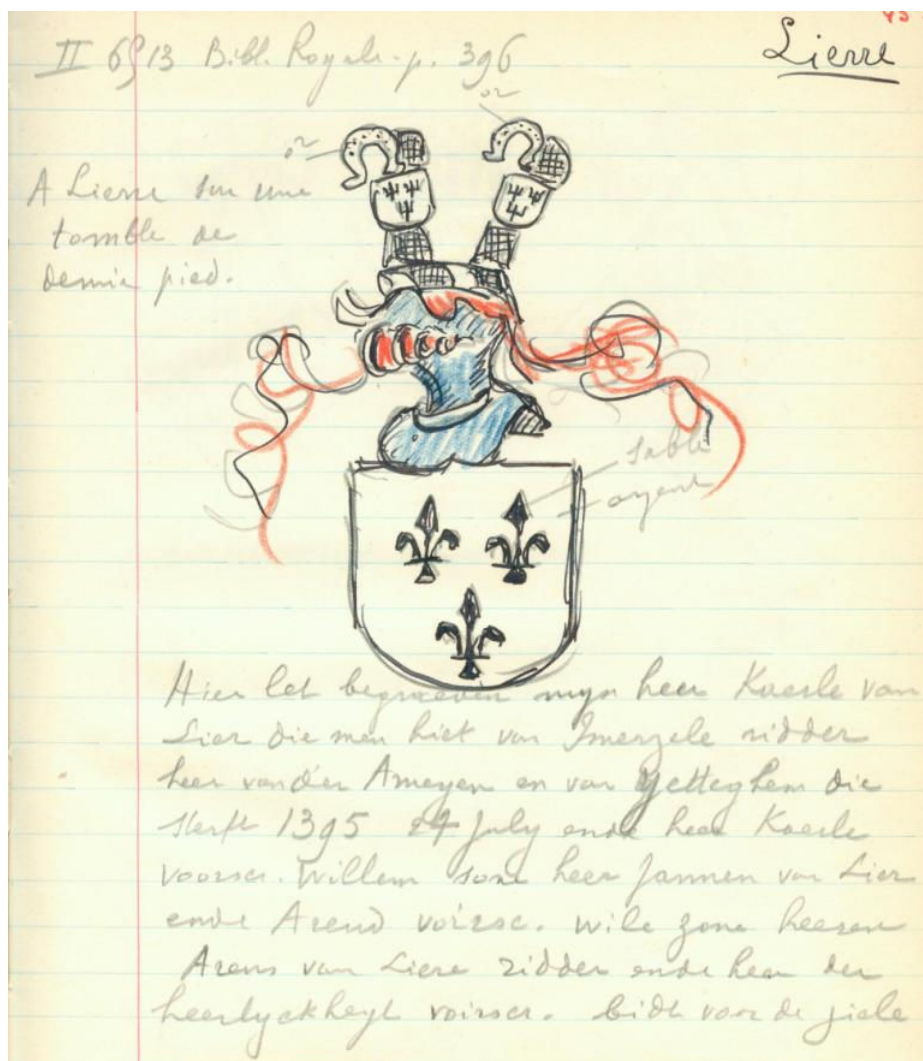 45
Lierre
II 6913 Bibl. Royale - p. 396
or
or
A Lierre sur une
tomble de
demie pied.
sable
argent
Hier let begraeven myn heer Kaerle van
Lier die men hiet van Imerzele ridder
heer van der Ameyen en van Yetteghem die
sterft 1395 24 july ende heer Kaerle
voorscr. Willem sone heer Jannen van Lier
ende Arend voirsc. wile zone heeren
Arens van Liere ridder ende heer der
heerlyckheyt voirscr. bidt voor de ziele